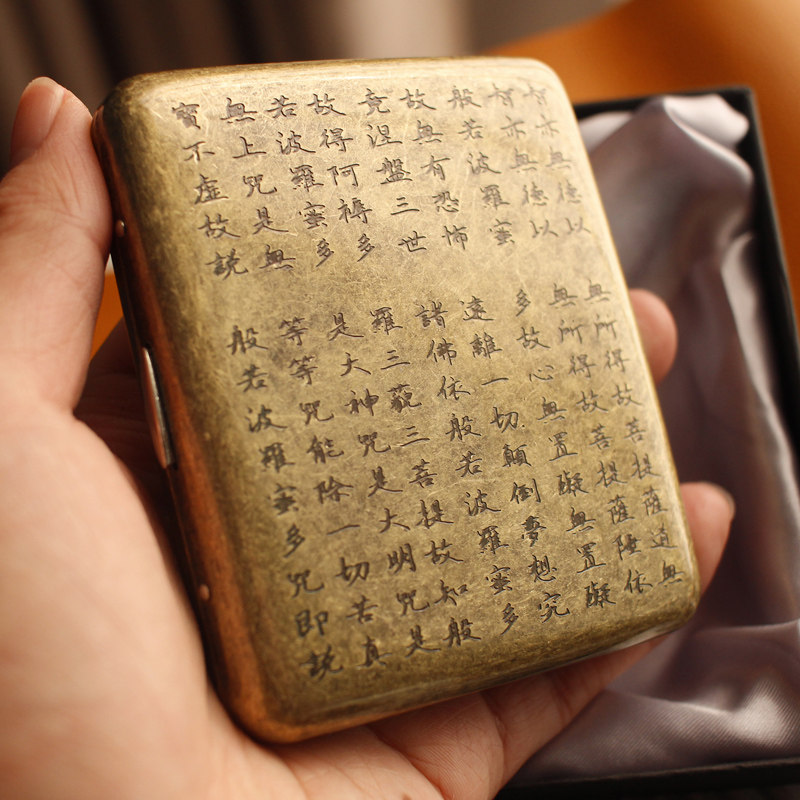 智亦無德以無所得故菩提薩道無
智亦無德以無所得故菩提薩陲依
般若波羅蜜多故心無置礙無置礙
故無有恐怖遠離一切顛倒夢想究
竟涅盤三世諸佛依般若波羅蜜多
故得阿耨多羅三藐三菩提故知般
若波羅蜜多是大神咒是大明咒是
無上咒是無等等咒能除一切苦真
實不虛故説般若波羅蜜多咒即説